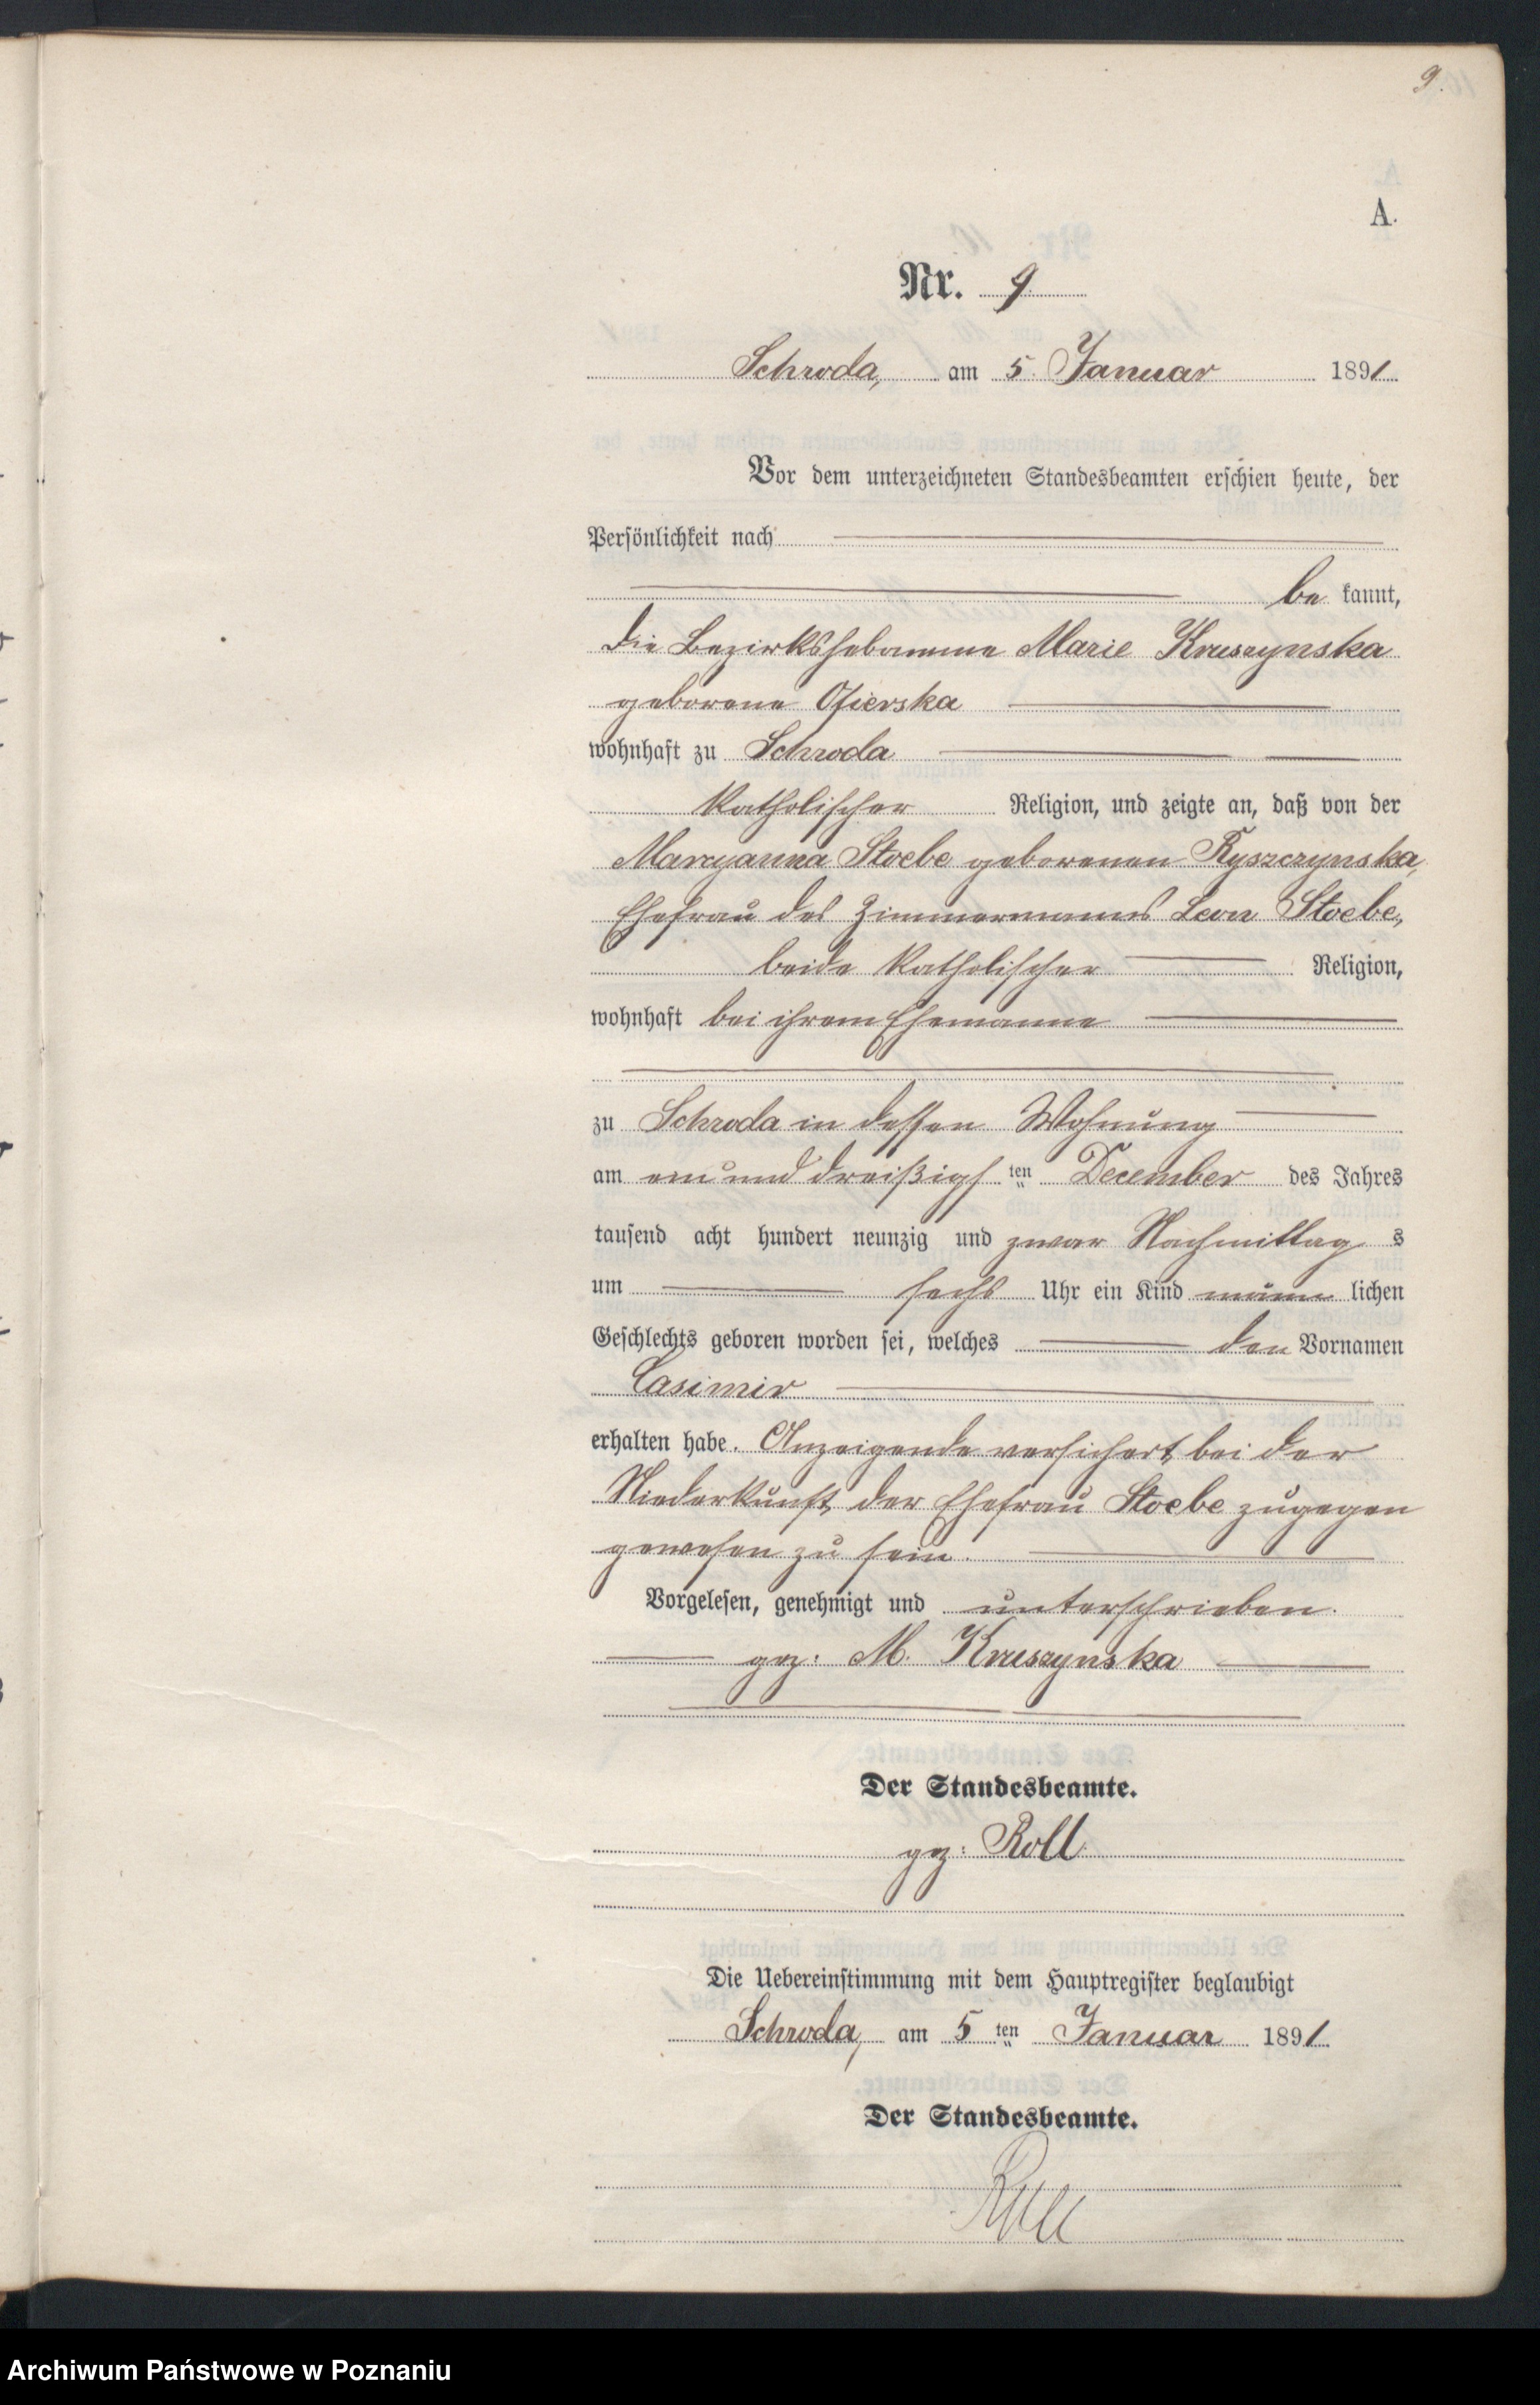 9.
A.
Nr. 9
Schroda, am 5. Januar 1891
Vor dem unterzeichneten Standesbeamten erschien heute, der
Persönlichkeit nach
be kannt,
die Bezirkshebamme Marie Kruszynska
geborene Ofierska
wohnhaft zu Schroda
katholischer Religion, und zeigte an, daß von der
Maryanna Stoebe geborenen Ryszczynska,
Ehefrau des Zimmermanns Leon Stoebe,
beide katholischer Religion,
wohnhaft bei ihrem Ehemanne
zu Schroda in dessen Wohnung
am ein und dreißigs ten December des Jahres
tausend acht hundert neunzig und zwar Nachmittag s
um sechs Uhr ein Kind männ lichen
Geschlechts geboren worden sei, welches den Vornamen
Casimir
erhalten habe. Anzeigende versichert, bei der
Niederkunft der Ehefrau Stoebe zugegen
gewesen zu sein.
Vorgelesen, genehmigt und unterschrieben.
gez: M. Kruszynska
Der Standesbeamte.
gez: Roll
Die Uebereinstimmung mit dem Hauptregister beglaubigt
Schroda, am 5 ten Januar 1891
Der Standesbeamte.
Roll
Archiwum Państwowe w Poznaniu